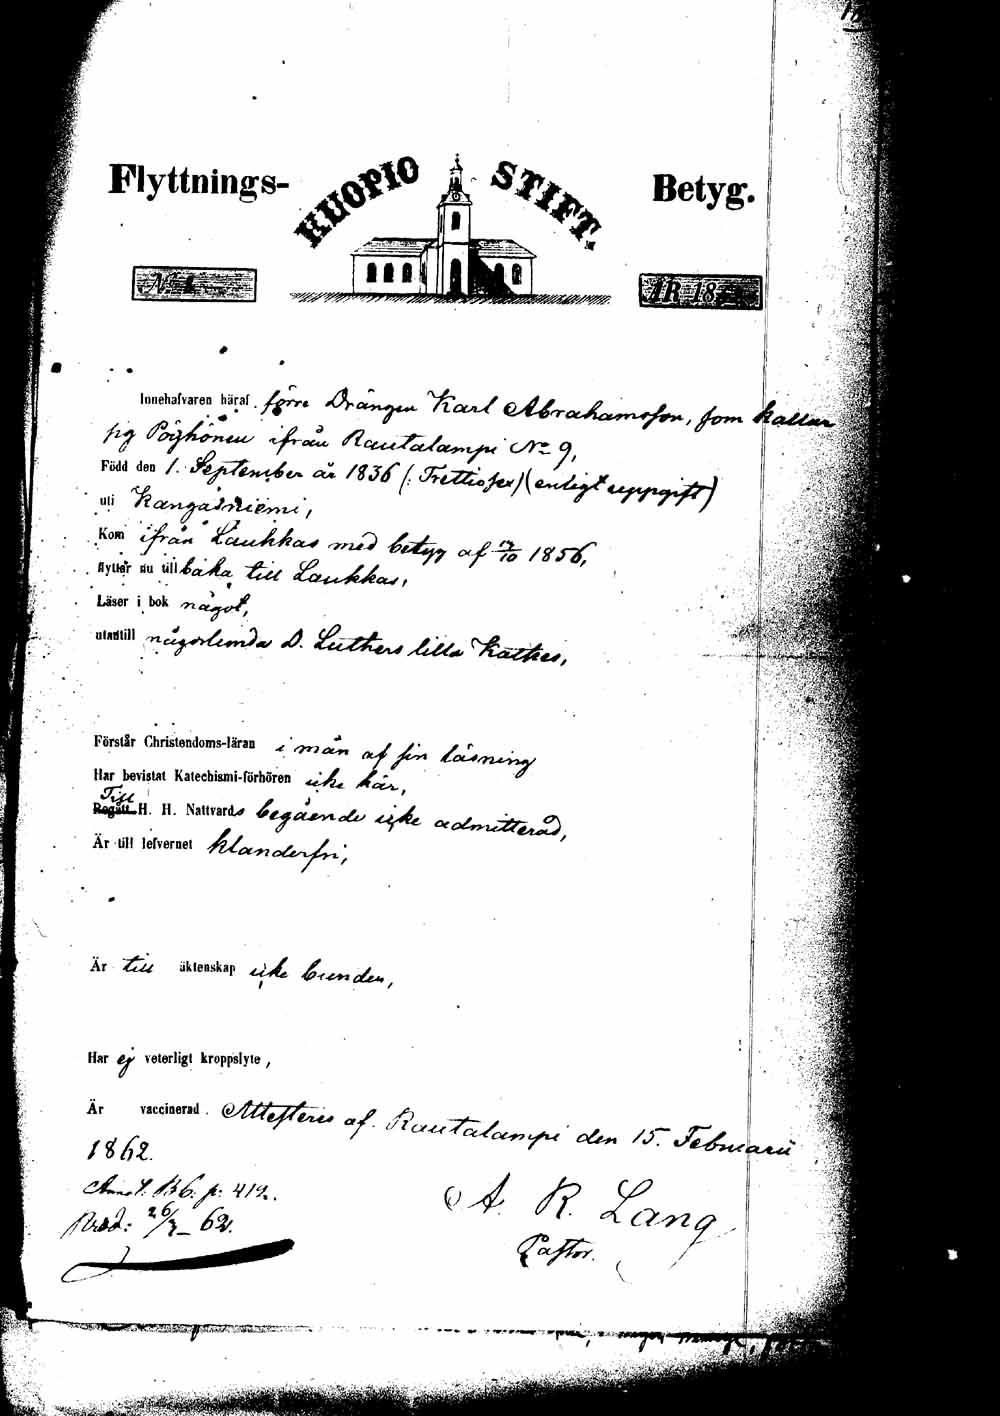 Flyttnings- KUOPIO STIFT. Betyg.
N:
ÅR 18
Innehafvaren häraf förre Drängen Karl Abrahamsson, som kallar
sig Pöyhönen ifrån Rautalampi No 9,
Född den 1. September år 1836 (: Trettiosex) (enligt uppgift)
uti Kangasniemi,
Kom ifrån Laukkas med betyg af 17/10 1856,
flyttar nu tillbaka till Laukkas,
Läser i bok något,
utantill någorlunda D. Luthers lilla Kathes,
Förstår Christendoms-läran i mån af sin läsning
Har bevistat Katechismi-förhören icke här,
Till
Begått H. H. Nattvards begående icke admitterad,
Är till lefvernet klanderfri,
Är till äktenskap icke bunden,
Har ej veterligt kroppslyte,
Är vaccinerad. Attesteres af. Rautalampi den 15. Februarii
1862.
B6. p: 419.
A. R. Lang
26/3 - 62.
Pastor.